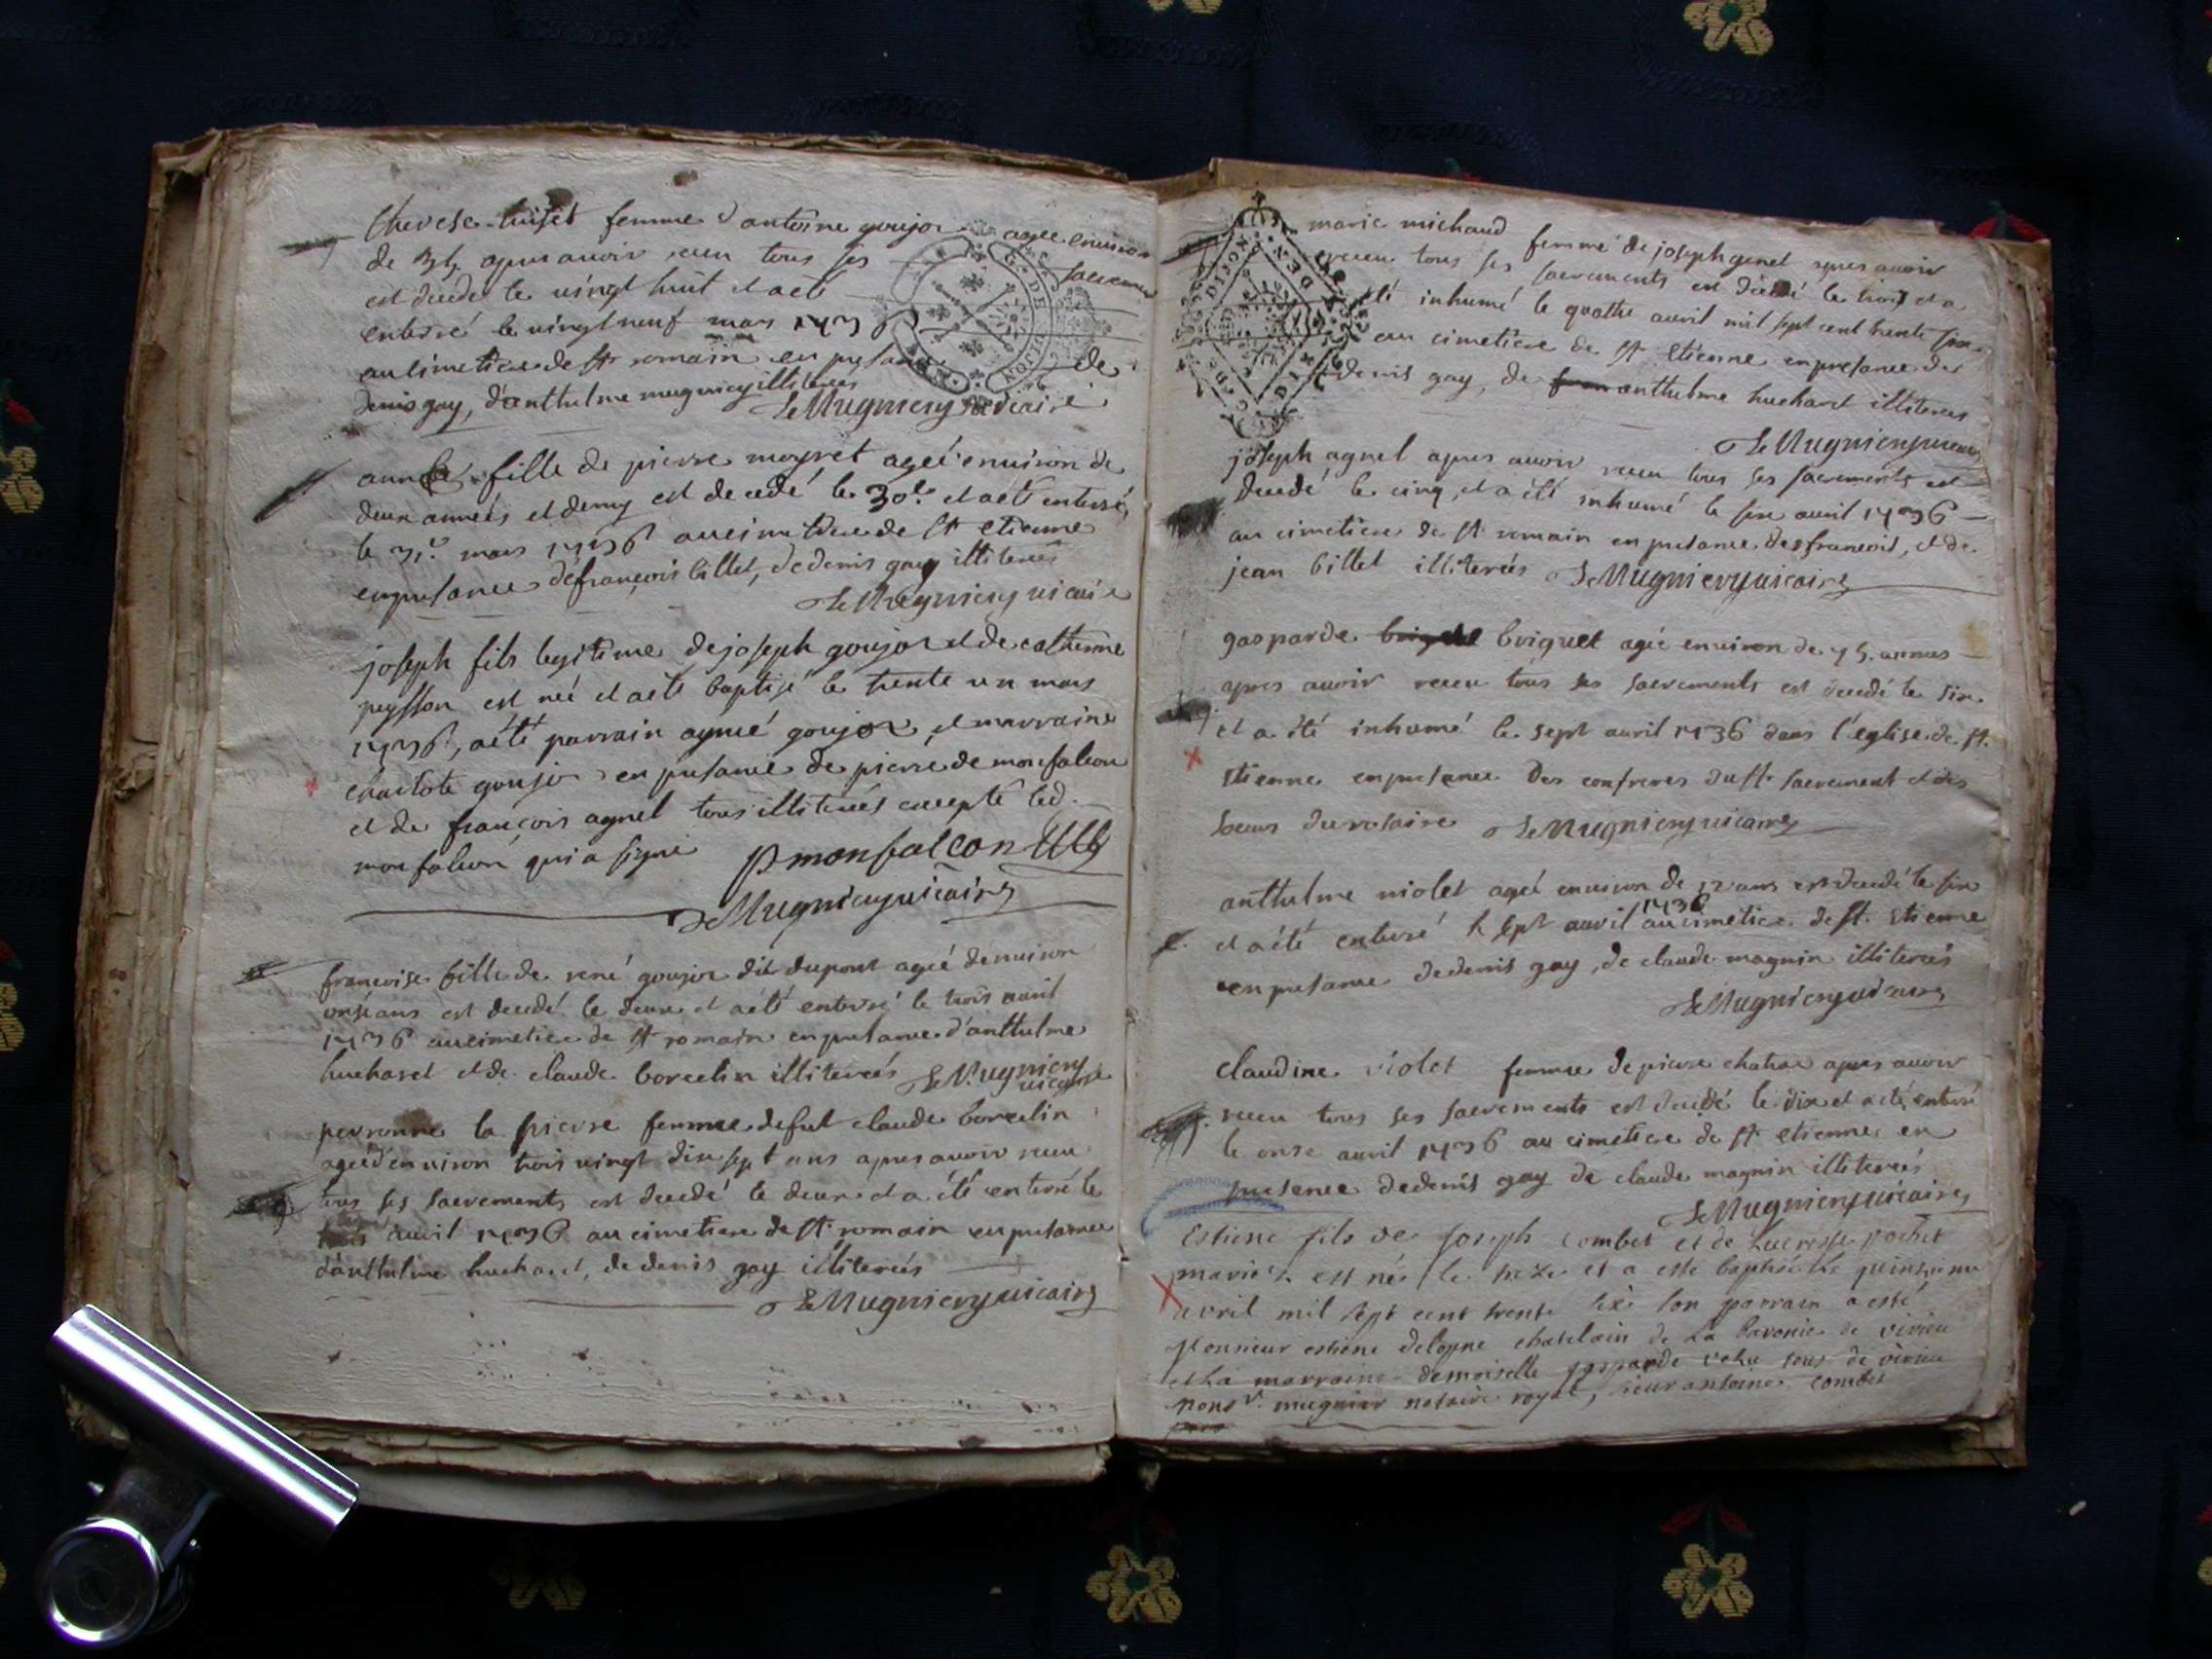 femme d'antoine goujon agee environ
de apres avoir receu tous ses sacremens
est decedé le vingt huit et a eté
enterré le vingt neuf mars 1736
au cimetiere de st romain en presance de
denis gay, d'anthelme mugniery illiterés
Mugniery vicaire
fille de pierre ageé environ de
deux années et demy est decedé le 30e. et a eté enterré
le 31e. mars 1736 au cimetiere de st etienne
en presance de françois billet, de denis gay illiterés
Mugniery vicaire
joseph fils legitime de joseph goujon et de catherine
peysson est né et a eté baptisé le trente un mars
1736, a été parrain aymé goujon, et marraine
charlote goujon en presance de pierre de monfalcon
et de françois agnel tous illiterés excepté led.
monfalcon qui a signé P monfalcon
Mugniery vicaire
francoise fille de rené goujon dit dupont ageé d'environ
onse ans est decedé le deux et a eté enterré le trois avril
1736 au cimetiere de st romain en presance d'anthelme
huchard et de claude borcelin illiterés Mugniery
vicaire
perronne la pierre femme de fut claude borcelin
ageé d'environ trois vingt dix sept ans apres avoir receu
tous ses sacrements est decedé le deux et a été enterré le
trois avril 1736 au cimetiere de st romain en presance
d'anthelme huchard, de denis gay illiterés
Mugniery vicaire
DIJON
marie michaud femme de joseph genet apres avoir
receu tous ses sacrements est decedé le trois et a
été inhumé le quatre avril mil sept cent trente six
au cimetiere de st etienne en presance de
denis gay, de anthelme huchard illiterés
Mugniery vicaire
joseph agnel apres avoir receu tous ses sacrements est
decedé le cinq, et a été inhumé le six avril 1736
au cimetiere de st romain en presance de francois, et de
jean billet illiterés Mugniery vicaire
gasparde briquet ageé environ de 75 annees
apres avoir receu tous ses sacrements est decedé le six
et a été inhumé le sept avril 1736 dans l'église de st.
etienne en presance des confreres du st sacrement et des
soeurs du rosaire Mugniery vicaire
anthelme violet ageé environ de 12 ans est decedé le six
1736
et a été enterré le sept avril au cimetiere de st. etienne
en presance de denis gay, de claude magnin illiterés
Mugniery vicaire
claudine violet femme de pierre apres avoir
receu tous ses sacrements est decedé le dix et a eté enterré
le onse avril 1736 au cimetiere de st etienne en
presence de denis gay de claude magnin illiterés
Mugniery vicaire
Estiene fils de joseph combet et de Lucresse pochet
mariés est né le treze et a esté baptisé le quinzieme
avril mil sept cent trente six son parrain a esté
Monsieur estiene chatelain de La baronie de virieu
et La marraine demoiselle gasparde de virieu
mugnier notaire royal, sieur antoine combet